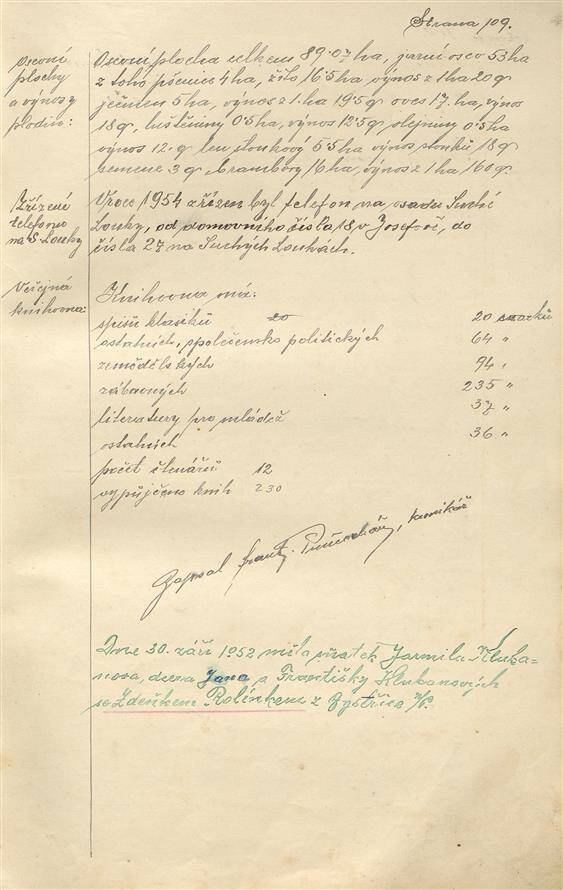 Strana 109.
Osevní
plochy
a výnosy
plodin:
Osevní plocha celkem 89·07 ha, jarní osev 53 ha
z toho pšenice ha, žito 16·5 ha výnos z 1 ha 20 q
ječmen 5 ha, výnos z 1. ha 19·5 q oves 17. ha, výnos
18 q, luštěniny 0·5 ha, výnos 12·5 q olejniny 0·5 ha
výnos 12. q len stonkový 5·5 ha výnos stonků 18 q
semene 3 q brambory 16 ha, výnos z 1 ha 160 q.
Zřízení
telefonu
na S. Louky
V roce 1954 zřízen byl telefon na osadu Suché
Louky, od domovního čísla 18 v Josefově, do
čísla 27 na Suchých Loukách.
Veřejná
knihovna:
Knihovna má:
spisů klasiků 20 20 svazků
ostatních, společensko politických 64 "
zemědělských 94 "
zábavných 235 "
literatury pro mládež 37 "
ostatních 36 "
počet čtenářů 12
vypůjčeno knih 230
Zapsal Frant. kronikář
Dne 30. září 1952 měla sňatek Jarmila Kluba-
nova, dcera Jana a Františky Klubanových
se Zdeňkem Rolínkem z Bystřice n/P.